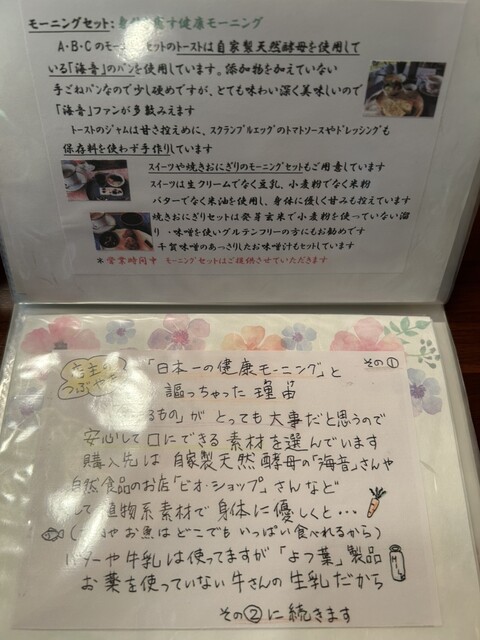 モーニングセット: す健康モーニング
A・B・Cのモーニングセットのトーストは自家製天然酵母を使用して
いる「海音」のパンを使用しています。添加物を加えていない
手ごねパンなので少し硬めですが、とても味わい深く美味しいので
「海音」ファンが多数みえます
トーストのジャムは甘さ控えめに、スクランブルエッグのトマトソースやドレッシングも
保存料を使わず手作りしています
スイーツや焼きおにぎりのモーニングセットもご用意しています
スイーツは生クリームでなく豆乳、小麦粉でなく米粉
バターでなく米油を使用し、身体に優しく甘みも控えています
焼きおにぎりセットは発芽玄米で小麦粉を使っていない溜
り・味噌を使いグルテンフリーの方にもお勧めです
味噌のあっさりしたお味噌汁もセットしています
*営業時間中 モーニングセットはご提供させていただきます
店主の
つぶやき
「日本一の健康モーニング」と その①
謳っちゃった理由
るもの」が とっても大事だと思うので
安心して口にできる素材を選んでいます
購入先は 自家製天然酵母の「海音」さんや
自然食品のお店「ビオ・ショップ」さんなど
して植物系素材で身体に優しくと…
(やお魚はどこでもいっぱい食べれるから)
バターや牛乳は使ってますが「よつ葉」製品
お薬を使っていない牛さんの生乳だから
その②に続きます